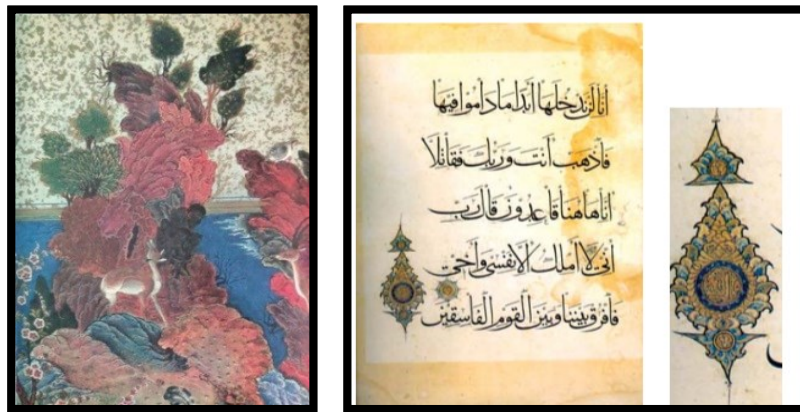 إنا لن ندخلها أبدا ما داموا فيها
فاذهب أنت وربك فقاتلا
إنا هاهنا قاعدون قال رب
إني لا أملك إلا نفسي وأخي
فافرق بيننا وبين القوم الفاسقين